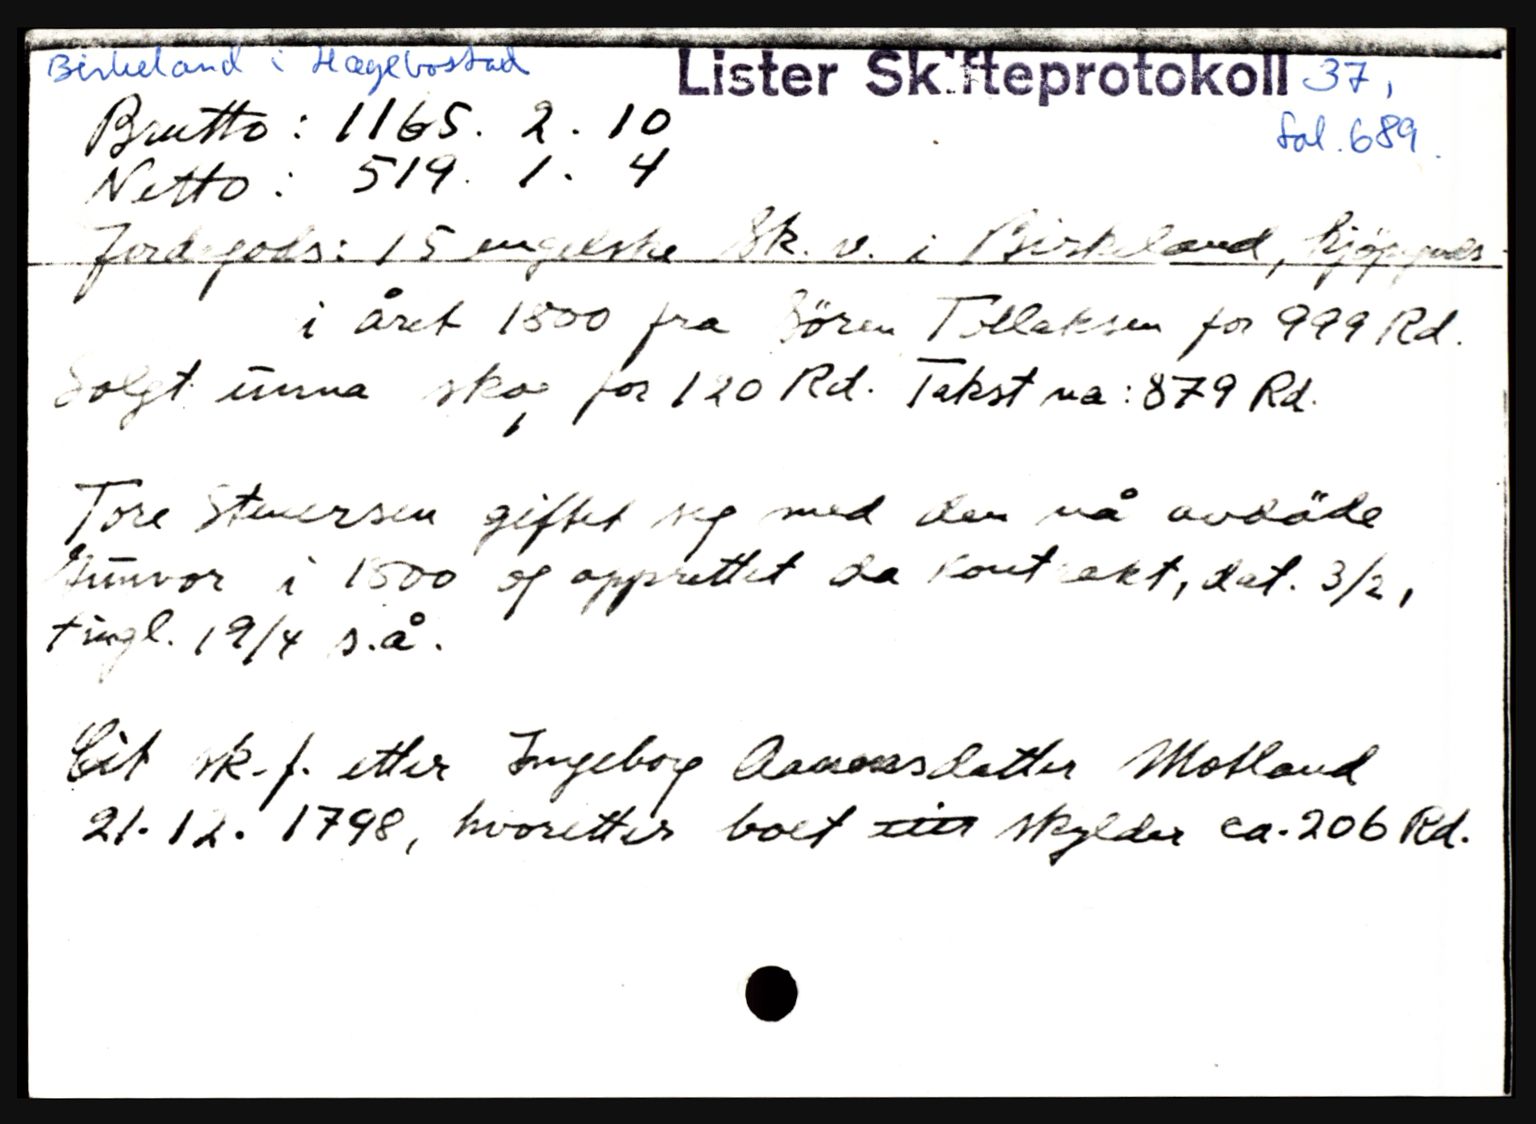 Birkeland i Hægebostad Lister Skifteprotokoll 37,
fol. 689.
Brutto: 1165. 2. 10
Netto: 519. 1. 4
Jordegods: 15 engelske Sk. v. i Birkeland, kjöpegods
i året 1800 fra Sören Tollaksen for 999 Rd.
Solgt unna skog for 120 Rd. Takst na: 879 Rd.
Tore Stenersen giftet seg med den nå avdöde
Gunvor i 1800 og opprettet da kontrakt, dat. 3/2,
tingl. 19/4 s.å.
Cit sk.f. etter Ingeborg Aanensdatter Motland
21.12. 1798, hvoretter boet skylder ca. 206 Rd.